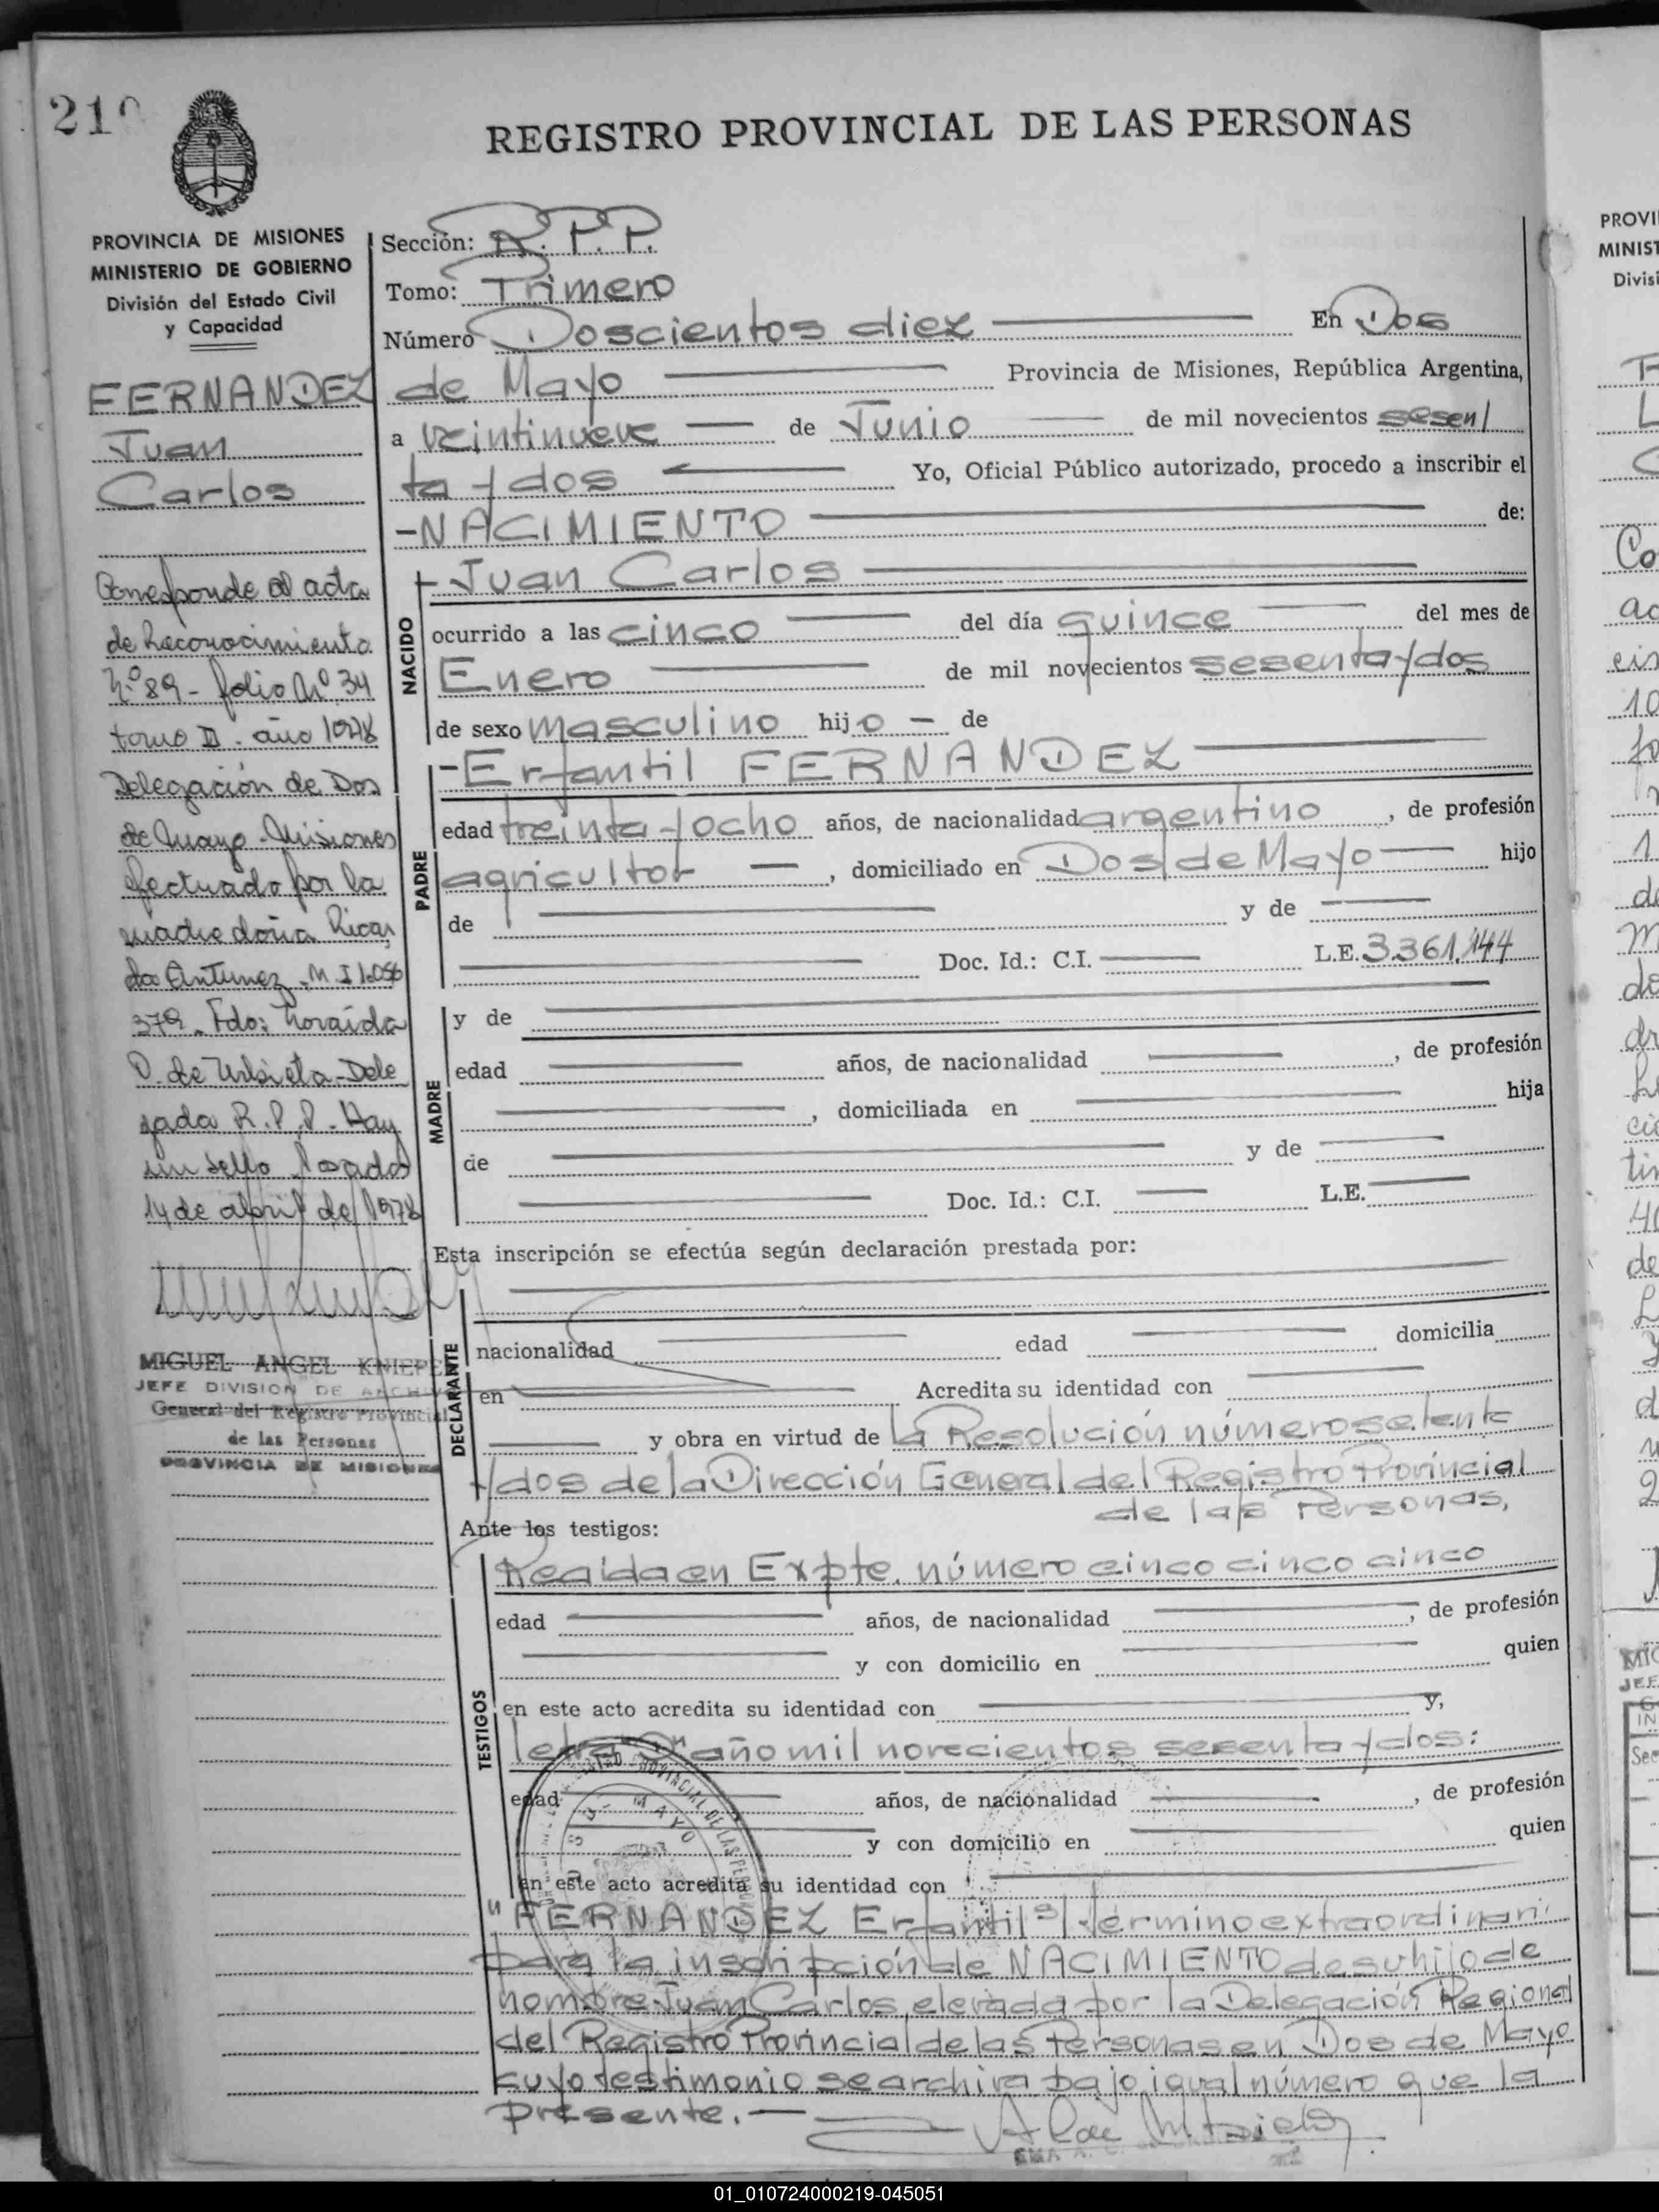 210
REGISTRO PROVINCIAL DE LAS PERSONAS
PROVINCIA DE MISIONES
MINISTERIO DE GOBIERNO
División del Estado Civil
y Capacidad
FERNANDEZ
Juan
Carlos
Corresponde al acta
de Reconocimiento
Nº 89 - folio Nº 34
tomo II - año 1978
Delegación de Dos
de Mayo - Misiones
efectuado por la
madre doña Ricar
da Antunez - M.I 1.056
379 - Fdo: Zoraida
O. de Urbieta - Dele
gada R.P.P. - Hay
un sello. Posadas
14 de abril de 1978
MIGUEL ANGEL KNIEPE
JEFE DIVISION DE ARCHIVO
General del Registro Provincial
de las Personas
PROVINCIA DE MISIONES
Sección: R. P. P.
Tomo: Primero
Número Doscientos diez En Dos
de Mayo Provincia de Misiones, República Argentina,
a veintinueve de Junio de mil novecientos sesen/
ta y dos Yo, Oficial Público autorizado, procedo a inscribir el
-NACIMIENTO de:
NACIDO
- Juan Carlos
ocurrido a las cinco del día quince del mes de
Enero de mil novecientos sesenta y dos
de sexo masculino hijo - de
PADRE
-Erfantil FERNANDEZ
edad treinta y ocho años, de nacionalidad argentino, de profesión
agricultor, domiciliado en Dos de Mayo hijo
de y de
Doc. Id.: C.I. L.E. 3.361.144
MADRE
y de
edad años, de nacionalidad, de profesión
, domiciliada en hija
de y de
Doc. Id.: C.I. L.E.
Esta inscripción se efectúa según declaración prestada por:
DECLARANTE
nacionalidad edad domicilia
en Acredita su identidad con
y obra en virtud de la Resolución número setenta
y dos de la Dirección General del Registro Provincial
de las Personas,
Ante los testigos:
TESTIGOS
Recaída en Expte. número cinco cinco cinco
edad años, de nacionalidad, de profesión
y con domicilio en quien
en este acto acredita su identidad con y,
letra año mil novecientos sesenta y dos:
edad años, de nacionalidad, de profesión
y con domicilio en quien
en este acto acredita su identidad con
"FERNANDEZ Erfantil s/ término extraordinari
para la inscripción de NACIMIENTO de su hijo de
nombre Juan Carlos, elevada por la Delegación Regional
del Registro Provincial de las Personas en Dos de Mayo
cuyo testimonio se archiva bajo igual número que la
presente. -
01_010724000219-045051